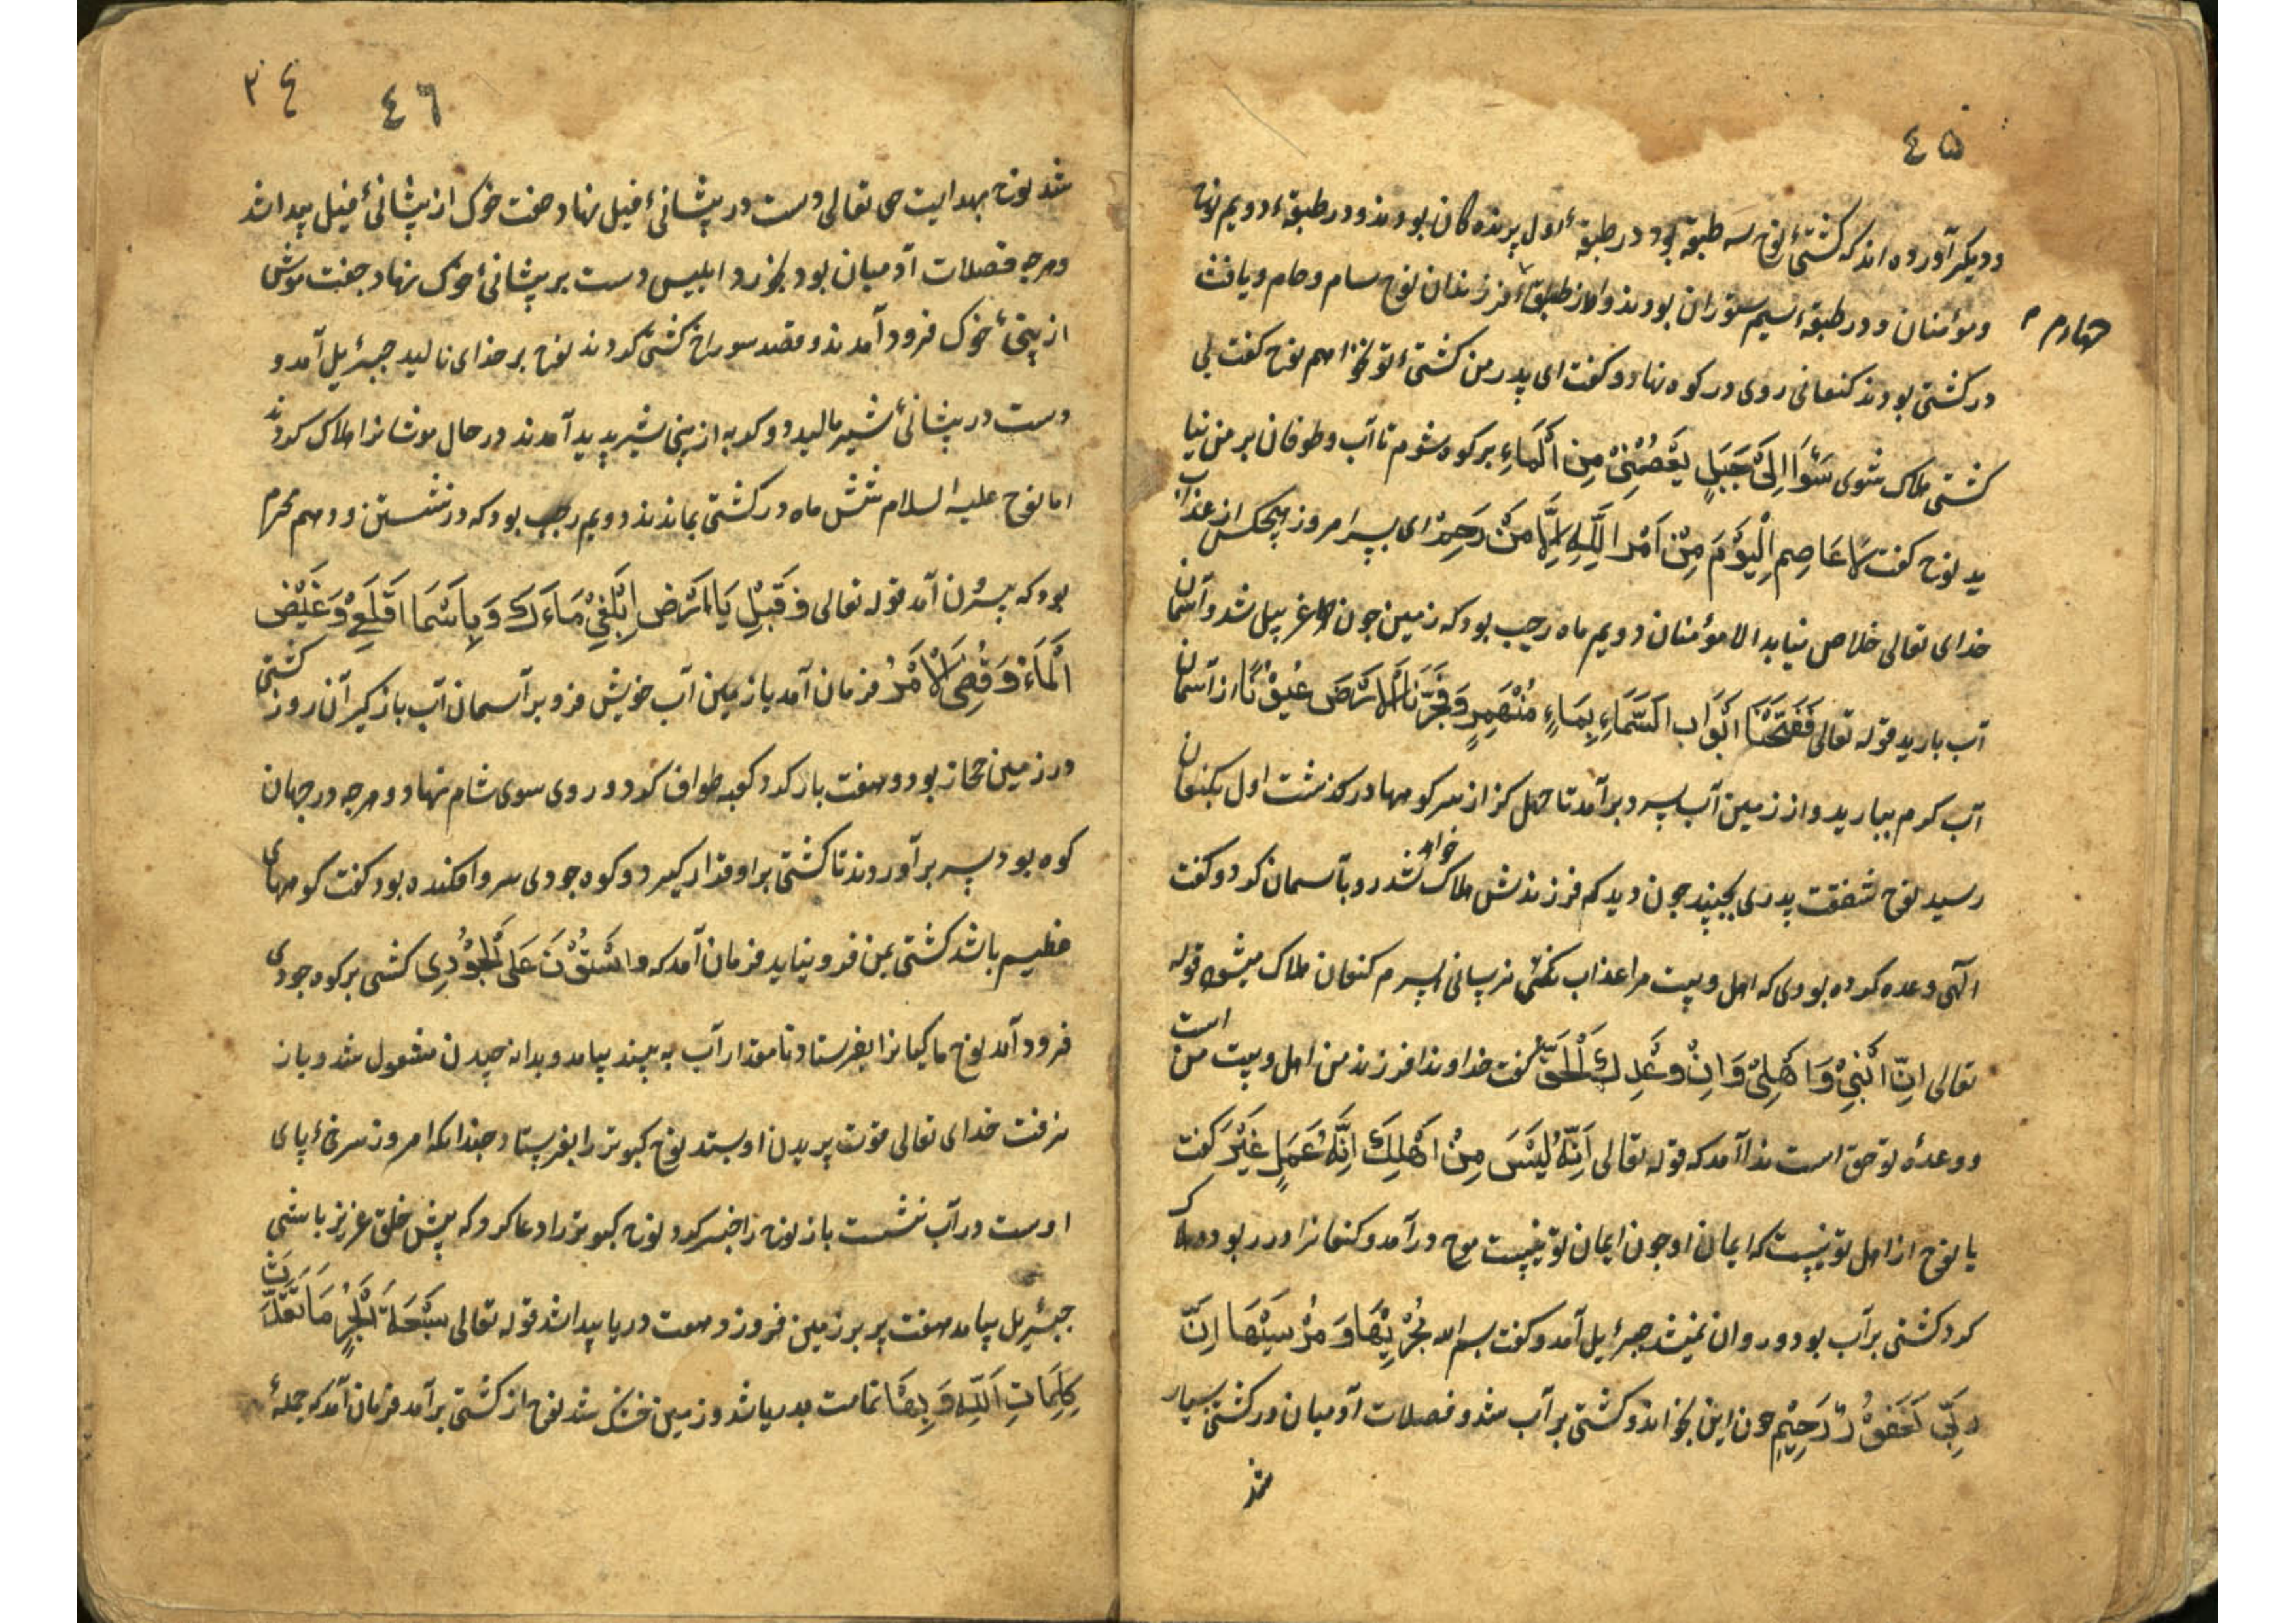 ٤٥
و دیکر آورده اند که کشتیٔ نوح سه طبقه بود در طبقهٔ اول پرنده کان بودند و در طبقهٔ دویم نوح
و مؤمنان و در طبقهٔ سیم ستوران بودند و از طبقهٔ فرزندان نوح سام و حام و یافث
چهارم م
در کشتی بودند کنعانی روی در کوه نهاد و کفت ای پدر من کشتیٔ تو نخواهم نوح کفت بی
کشتی هلاک شوی سَئَوَا اِلیٰ جَبَلٍ یَعْصُمُنِیْ مِنَ الْمَاءِ بر کوه شوم تا آب و طوفان بر من نیا
ید نوح کفت لَا عَاصِمِ الْیَوْمَ مِنْ اَمْرِ اللّٰهِ اِلَّا مَنْ رَحِمَ ای پسر امروز هیچکس از عذاب
خدای تعالی خلاص نیابد الا مؤمنان دویم ماه رجب بود که زمین چون غربیل شد و آسمان
آب بارید قوله تعالی فَفَتَحْنَا اَبْوَابَ السَّمَاءِ بِمَاءٍ مُنْهَمِرٍ وَ فَجَّرْنَا الْاَرْضَ عُیُوْنًا از آسمان
آب کرم ببارید و از زمین آب سرد برآمد تا چهل کز از سر کوهها در کذشت اول بکنعان
رسید نوح شفقت پدری بجنبید چون دید که فرزندش هلاک خواهد شد رو بآسمان کرد و کفت
الهی وعده کرده بودی که اهل و بیت مرا عذاب نکنی نرسانی پسرم کنعان هلاک میشود قوله
تعالی اِنَّ ابْنِیْ وَ اهْلِیْ وَ اِنَّ وَعْدِكَ الْحَقّ کفت خداوندا فرزند من اهل و بیت من است
و وعدهٔ تو حق است ندا آمد که قوله تعالی اِنَّهُ لَیْسَ مِنْ اَهْلِكَ اِنَّهُ عَمَلٍ غَیْرَ کفت
یا نوح از اهل تو نیست که ایمان او چون ایمان تو نیست موج درآمد و کنعانرا در ربود هلاک
کرد کشتی بر آب بود و روان نمیشد جبرئیل آمد و کفت بسم الله مَجْرٖیهَا وَ مُرْسَیٰهَا اِنَّ
رَبِّی لَغَفُوْرٌ رَحِیْمٍ چون این بخواند کشتی بر آب شد و فضلات آدمیان در کشتی بسیار
شد
٣٤
٤٦
شد نوح بهدایت حق تعالی دست در پیشانیٔ فیل نهاد جفت خوک از پیشانیٔ فیل پیدا شد
و هرچه فضلات آدمیان بود بخورد ابلیس دست بر پیشانیٔ خوک نهاد جفت موش
از بینیٔ خوک فرود آمدند و قصد سوراخ کشتی کردند نوح بر خدای نالید جبرئیل آمد و
دست در پیشانیٔ شیر مالید دو کربه از بینی شیر پدید آمدند در حال موشانرا هلاک کردند
اما نوح علیه السلام شش ماه در کشتی بماندند دویم رجب بود که در نشستن و دهم محرم
بود که بیرون آمد قوله تعالی وَ قَیْلِ یَا اَرْضِ ابْلَغِیْ مَاءَكَ وَ یَا سَمَا اَقْلَعِیْ وَ غَیْضَ
الْمَاءَ وَ قُضِیَ الْاَمْرُ فرمان آمد یا زمین آب خویش فرو بر آسمان آب باز کیر آن روز کشتی
در زمین حجاز بود و هفت بار کرد کعبه طواف کرد و روی سوی شام نهاد و هرچه در جهان
کوه بود سر برآوردند تا کشتی بر او قرار کیرد و کوه جودی سر وا فکنده بود کفت کوههای
عظیم باشد کشتی بمن فرو نیاید فرمان آمد که وَ اسْتَوْتَ عَلَی الْجُوْدِی کشتی بر کوه جودی
فرود آمد نوح ماکیانرا بفرستاد تا مقدار آب به بیند بیامد و بدانه چیدن مشغول شد و باز
نرفت خدای تعالی قوت پریدن او بستد نوح کبوتر را بفرستاد چندانکه امروز سرخیٔ پای
اوست در آب نشست باز نوح را خبر کرد نوح کبوتر را دعا کرد که پیش خلق عزیز باشی
جبرئیل بیامد هفت پر بر زمین فرو زد و هفت دریا پیدا شد قوله تعالی سَبْعَةَ اَبْحُرٍ مَا نَفَذَت
کَلِمَاتِ اللّٰهِ وَ بهَا تمامت بدریا شد و زمین خشک شد نوح از کشتی برآمد فرمان آمد که جملهٔ